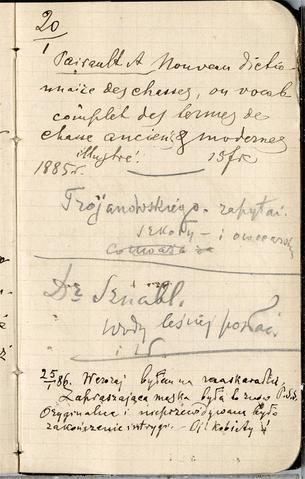 20
1
Pairault A Nouveau dictio-
nnaire des chasses, ou vocab
complet des termes de
chasse anciens & modernes
illustré. 15 fr
1885 r.
Trojanowskiego. zapytać.
szkoły - i
Dr Sznabl.
wody leśnej posłać
i
25/1 86. Wczoraj byłem na maskaradzie,
Zapraszająca maska była to znów P.S.
Oryginalne i nieprzewidywane było
zakończenie intrygi. - Oj kobiety!